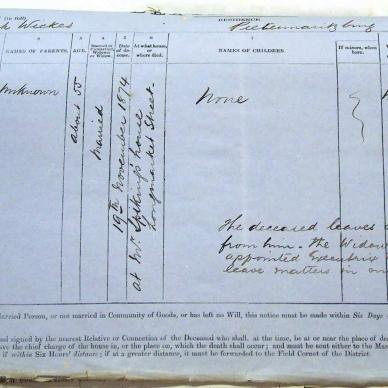 (in full)
RESIDENCE
h Wickes
Pietermaritzburg
NAMES OF PARENTS.
AGE.
Married or
Unmarried,
Widower or
Widow.
Date
of de-
cease.
At what house,
or
where died.
NAMES OF CHILDREN.
If minors, when
born.
Unknown
about 55
Married
19th November 1874
at Mr. Spikings house
Longmarket Street
None
The deceased leaves a
from him – the Widow
appointed Executrix
leave matters in
arried Person, or not married in Community of Goods, or has left no Will, this notice must be made within Six Days
and signed by the nearest Relative or Connection of the Deceased who shall, at the time, be at or near the place of dea
ave the chief charge of the house in, or the place on, which the death shall occur; and must be sent either to the Mas
if within Six Hours' distance; if at a greater distance, it must be forwarded to the Field Cornet of the District.